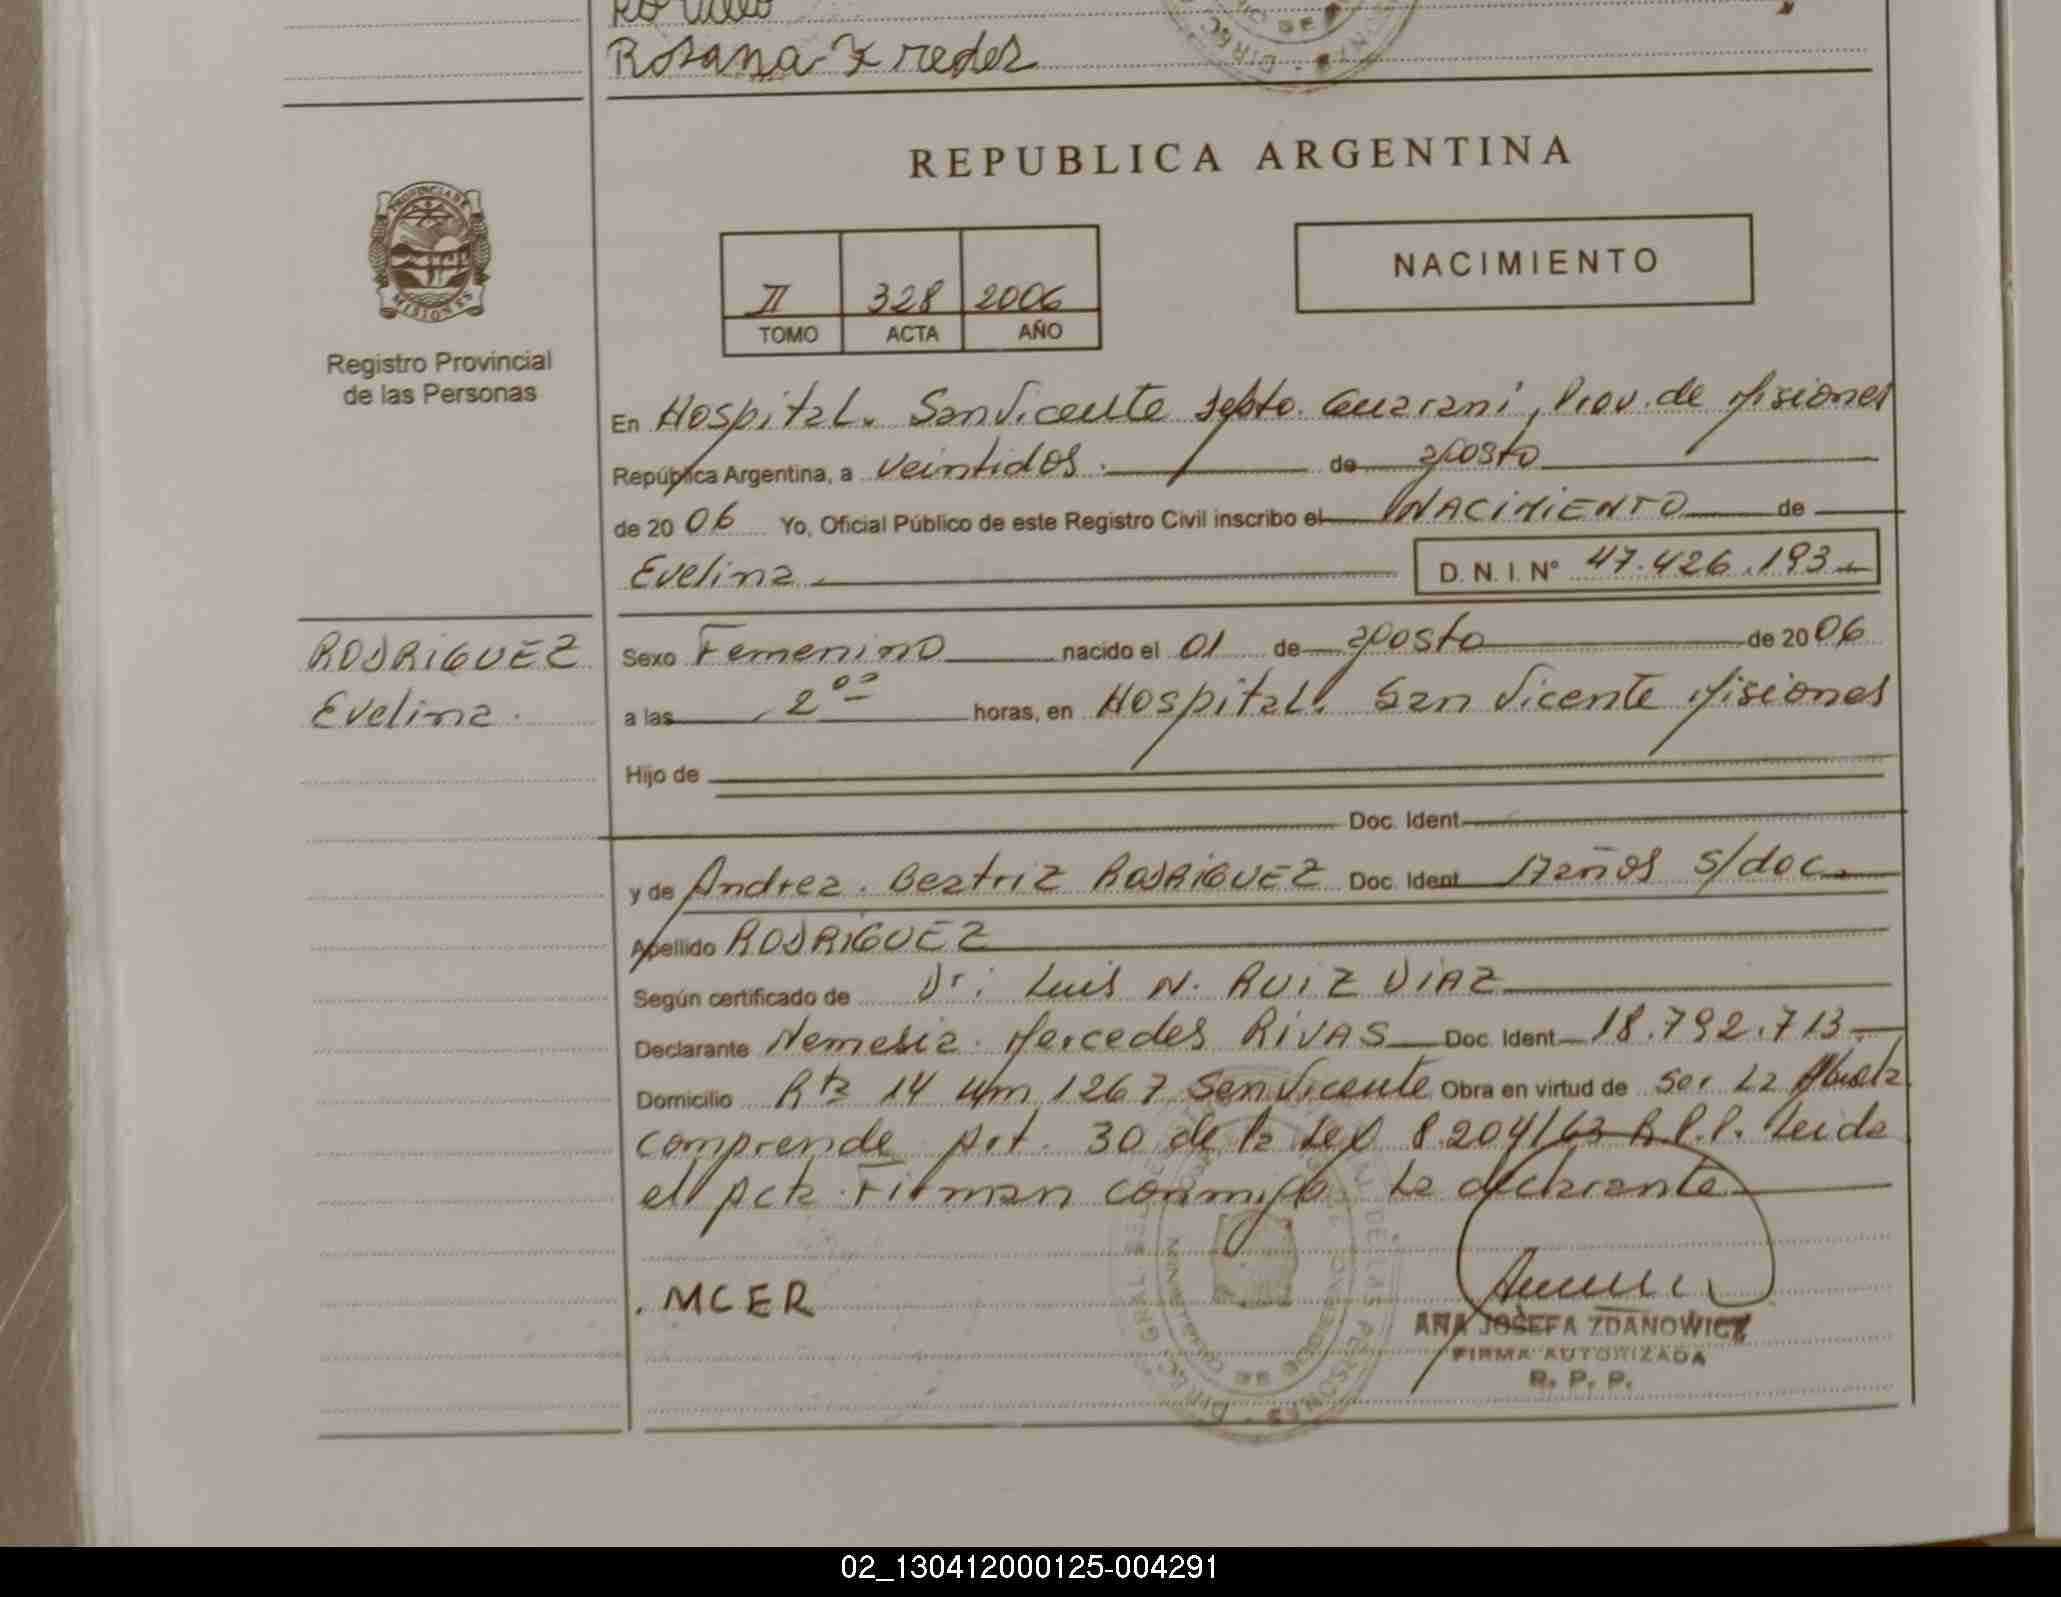 Rosana Fredes
REPUBLICA ARGENTINA
PROVINCIA DE
MISIONES
Registro Provincial
de las Personas
II 328 2006
TOMO ACTA AÑO
NACIMIENTO
En Hospital. San Vicente Dpto. Guarani, Prov. de Misiones
República Argentina, a veintidos de agosto
de 2006 Yo, Oficial Público de este Registro Civil inscribo el NACIMIENTO de
Evelina D. N. I. N° 47.426.193
RODRIGUEZ
Evelina.
Sexo Femenino nacido el 01 de agosto de 2006
a las 2 00 horas, en Hospital. San Vicente Misiones
Hijo de
Doc. Ident.
y de Andrea. Beatriz RODRIGUEZ Doc. Ident. 17 años s/doc.
Apellido RODRIGUEZ
Según certificado de Dr: Luis N. RUIZ DIAZ
Declarante Nemesia. Mercedes RIVAS Doc. Ident. 18.792.713
Domicilio Rta 14 Km 1267 San Vicente Obra en virtud de ser La Abuela
comprende Art. 30 de la Ley 8.204/63 R.P.P. Leida
el Acta. Firman conmigo La declarante
. MCER
ANA JOSEFA ZDANOWICZ
FIRMA AUTORIZADA
R. P. P.
02_130412000125-004291